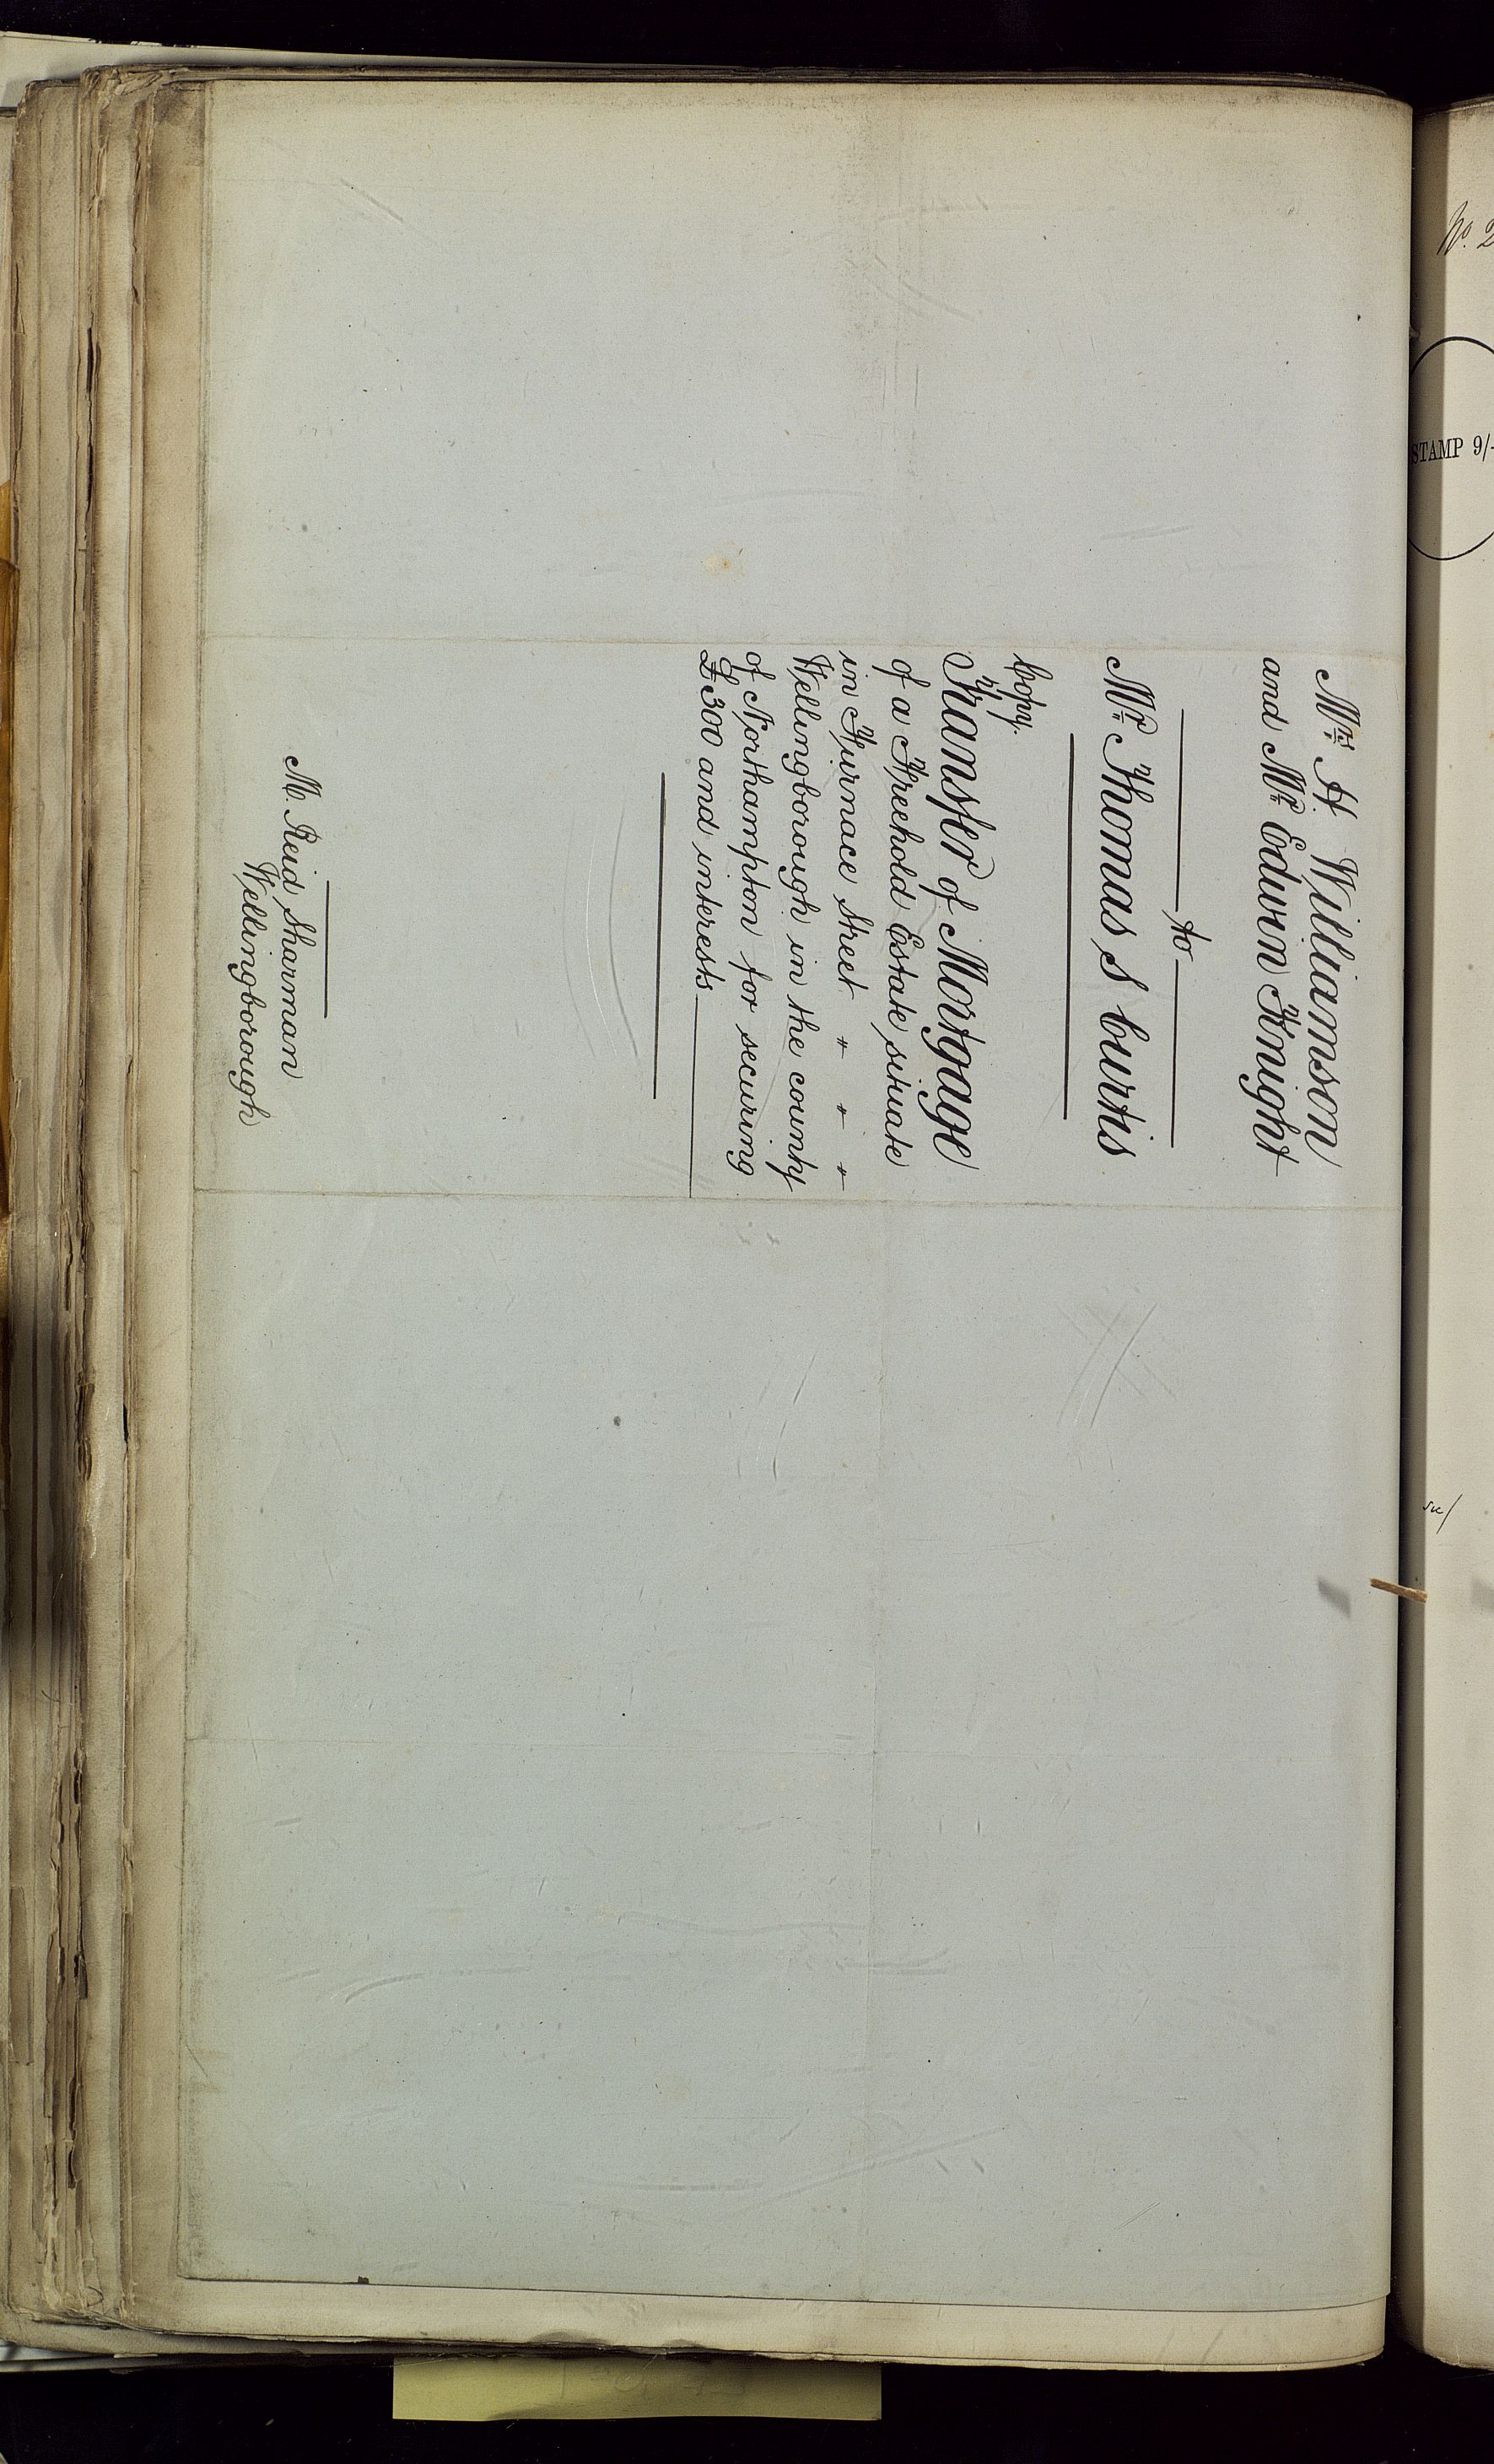 Mrs. H. Williamson
and Mr. Edwin Knight
to
Mr. Thomas S Curtis
Copy.
Transfer of Mortgage
of a Freehold Estate situate
in Furnace Street " " "
Wellingborough in the county
of Northampton for securing
£300 and interests
M. Reid Sharman
Wellingborough
No. 2
STAMP 9/-